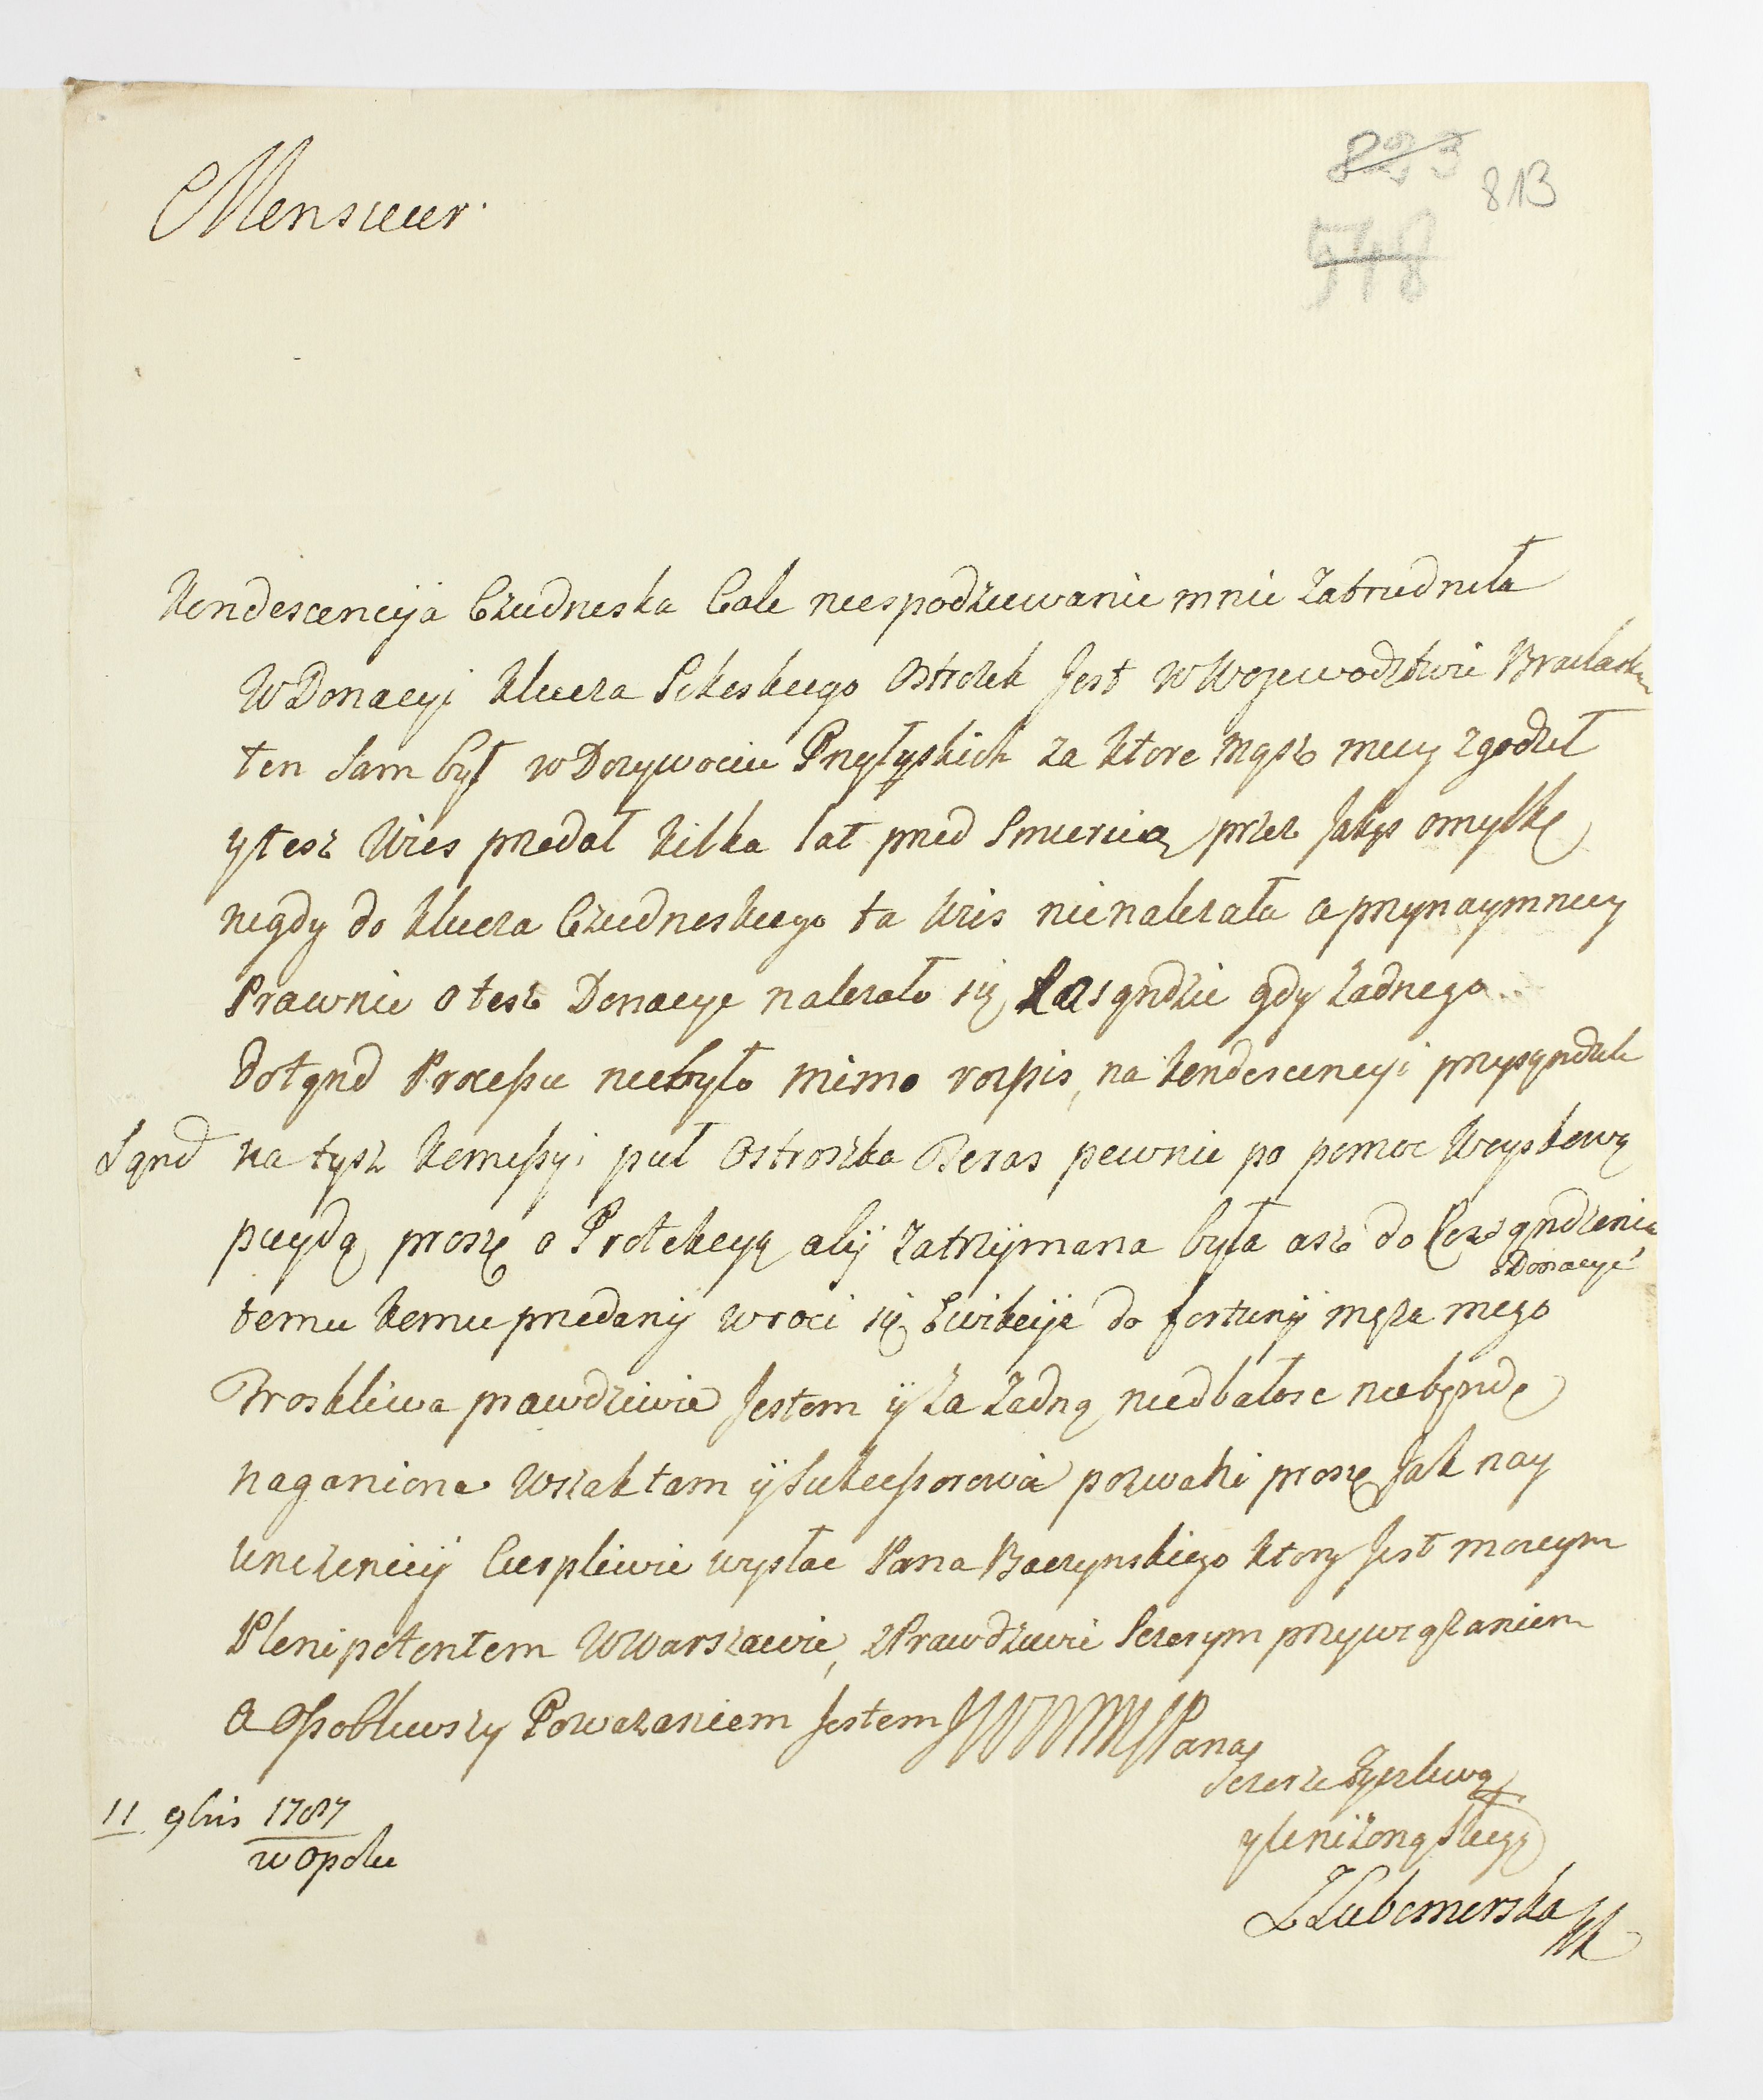 823
813
548
Monsieur
Kondescencyia Czudneska Cale niespodziewanie mnie zatrudniła
W Donacyi klucza Ostrozek Jest w Wojewodztwie Braclaskim
ten Sam był w Dozywociu za ktore mąsz muy zgodził
y tesz Wies przedał kilka lat przed Smiercią przez Jakąs omyłkę
nigdy do klucza Czudneskiego ta Wies nie nalezała a przynaymniey
Prawnie o tesz Donacye nalezało się gdy zadnego
dotąnd Processu niebyło mimo rozpis, na kondescencyi przysąndzili
Sąnd na tysz Komessyi puł Ostroszka Teras pewnie po pomoc Woyskową
pujdą proszę o Protekcyą aby zatrzymana była asz do
o Donacye
temu komu przedany wroci się Ewikcyia do fortuny męża mego
Troskliwa prawdziwie Jestem y za zadną niedbałosc niebęndę
naganiona wszak tam y Sukcessorowie pozwani proszę Jak nay
Unizeniey Cierpliwie wysłac Pana Baczynskiego ktory Jest mocnym
Plenipotentem w Warszawie, z Prawdziwie Sczerym przywiązaniem
a Ossobliwszy Powazaniem Jestem JWWMMPana
Sczerze Zyczliwą
y Unizoną Sługą
Z Lubomirska
11 9bris 1787
w Opolu